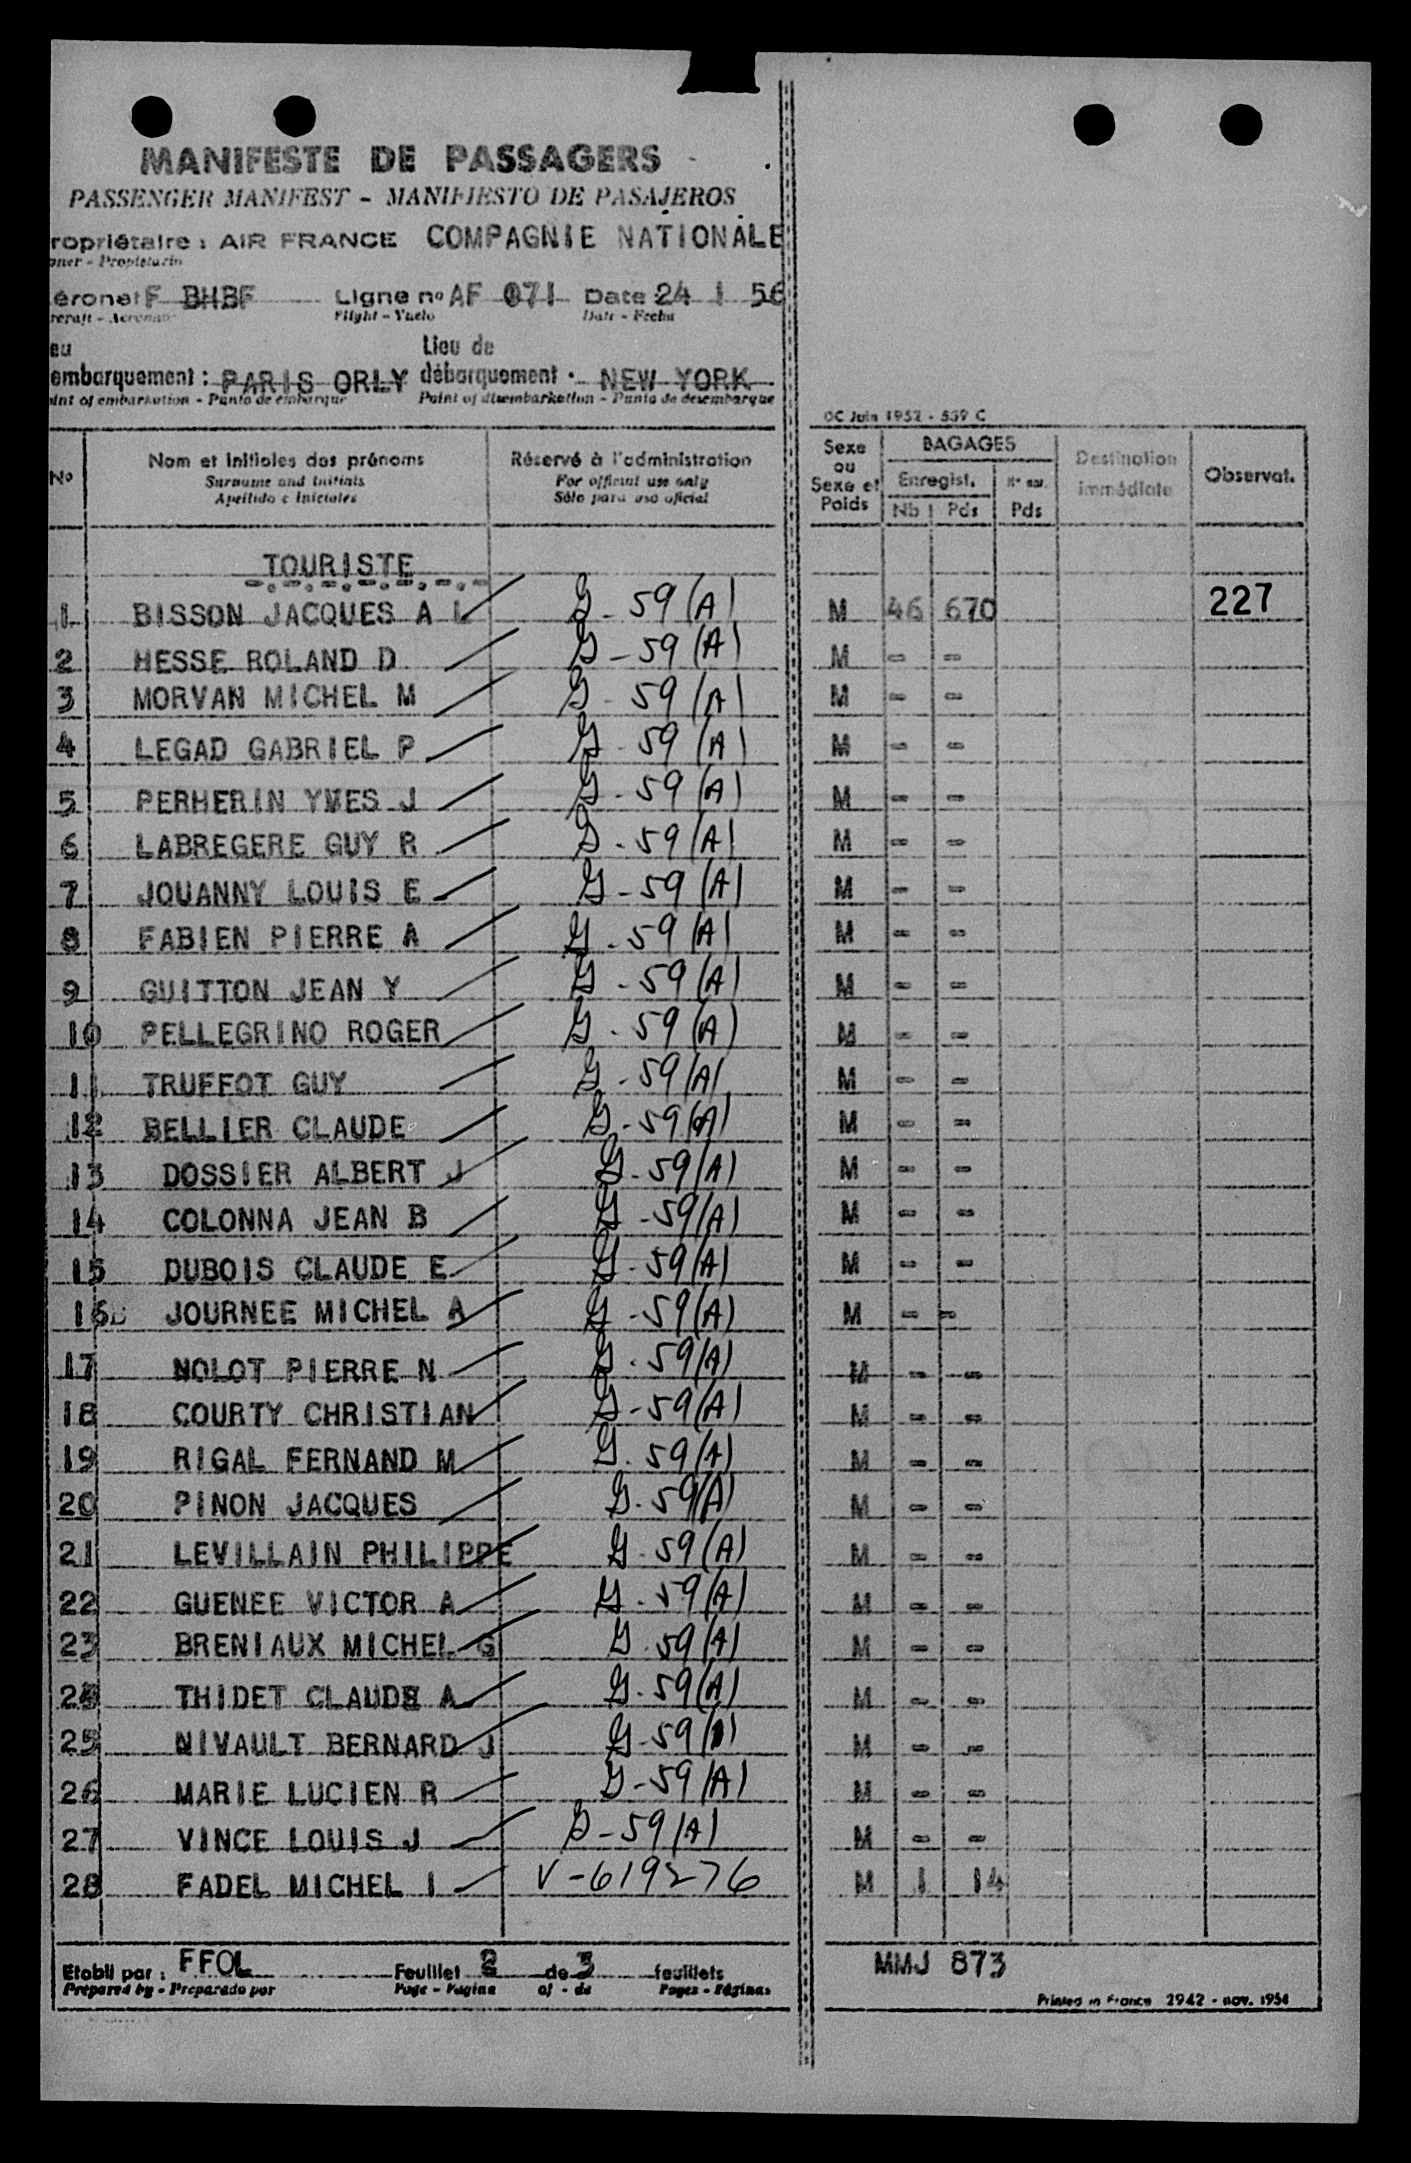 MANIFESTE DE PASSAGERS
PASSENGER MANIFEST - MANIFIESTO DE PASAJEROS
ropriétaire : AIR FRANCE COMPAGNIE NATIONALE
ner - Propietario
éronef F BHBF Ligne nº AF 071 Date 24 1 56
craft - Aeronave Flight - Vuelo Date - Fecha
eu Lieu de
embarquement : PARIS ORLY débarquement : NEW YORK
int of embarkation - Punto de embarque Point of disembarkation - Punto de desembarque
OC Juin 1952 - 539 C
Nº Nom et initiales des prénoms Réservé à l'administration Sexe ou Sexe et Poids BAGAGES Destination immédiate Observat.
Surname and initials For official use only Enregist.
Apellido e iniciales Sólo para uso oficial Nb Pds Pds
TOURISTE
1 BISSON JACQUES A L G-59(A) M 46 670 227
2 HESSE ROLAND D G-59(A) M - -
3 MORVAN MICHEL M G-59(A) M - -
4 LEGAD GABRIEL P G-59(A) M - -
5 PERHERIN YVES J G-59(A) M - -
6 LABREGERE GUY R G-59(A) M - -
7 JOUANNY LOUIS E G-59(A) M - -
8 FABIEN PIERRE A G-59(A) M - -
9 GUITTON JEAN Y G-59(A) M - -
10 PELLEGRINO ROGER G-59(A) M - -
11 TRUFFOT GUY G-59(A) M - -
12 BELLIER CLAUDE G-59(A) M - -
13 DOSSIER ALBERT J G-59(A) M - -
14 COLONNA JEAN B G-59(A) M - -
15 DUBOIS CLAUDE E G-59(A) M - -
16 JOURNEE MICHEL A G-59(A) M - -
17 NOLOT PIERRE N G-59(A) M - -
18 COURTY CHRISTIAN G-59(A) M - -
19 RIGAL FERNAND M G-59(A) M - -
20 PINON JACQUES G-59(A) M - -
21 LEVILLAIN PHILIPPE G-59(A) M - -
22 GUENEE VICTOR A G-59(A) M - -
23 BRENIAUX MICHEL G G-59(A) M - -
24 THIDET CLAUDE A G-59(A) M - -
25 NIVAULT BERNARD J G-59(A) M - -
26 MARIE LUCIEN R G-59(A) M - -
27 VINCE LOUIS J G-59(A) M - -
28 FADEL MICHEL I V-619276 M 1 14
Etabli par : FFOL Feuillet 2 de 3 feuillets MMJ 873
Prepared by - Preparado por Page - Página of - de Pages - Páginas
Printed in France 2942 - nov. 1954